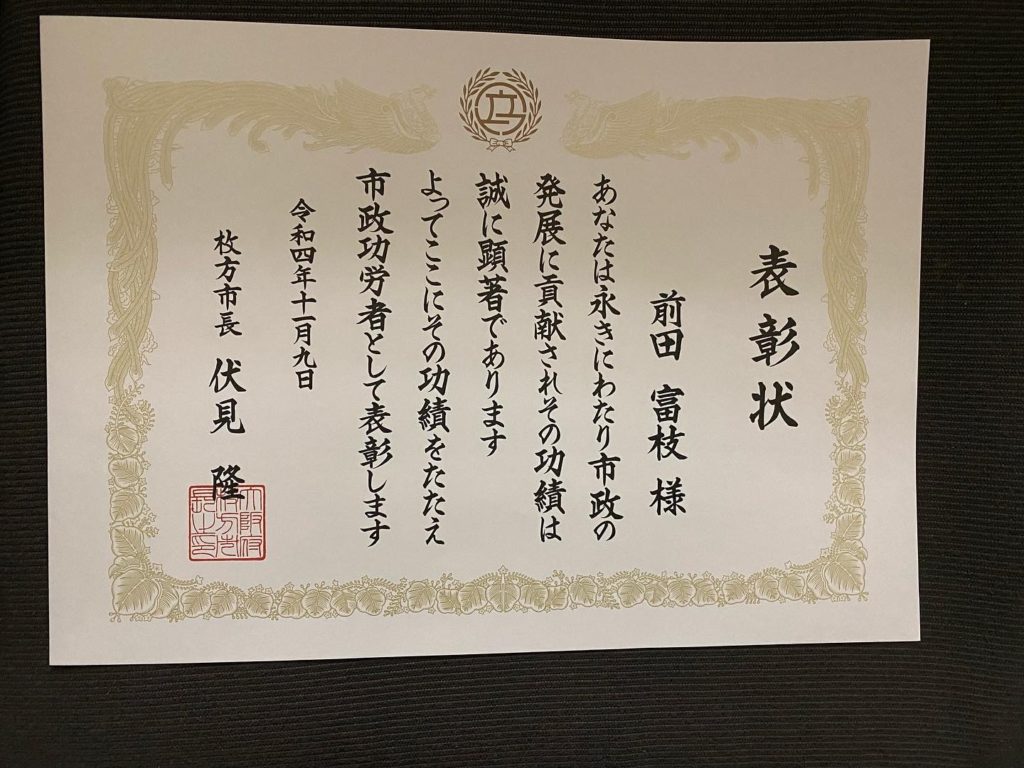 表彰状
前田 富枝 様
あなたは永きにわたり市政の
発展に貢献されその功績は
誠に顕著であります
よってここにその功績をたたえ
市政功労者として表彰します
令和四年十一月九日
枚方市長 伏見 隆
大阪府
枚方市
長之印